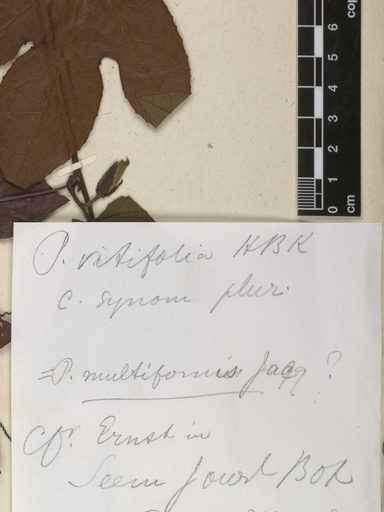 P. vitifolia HBK
c. synom plur.
=P. multiformis Jacq ?
Cfr. Ernst in
Seem Journ Bot
0 1 2 3 4 5 6
cm
cop